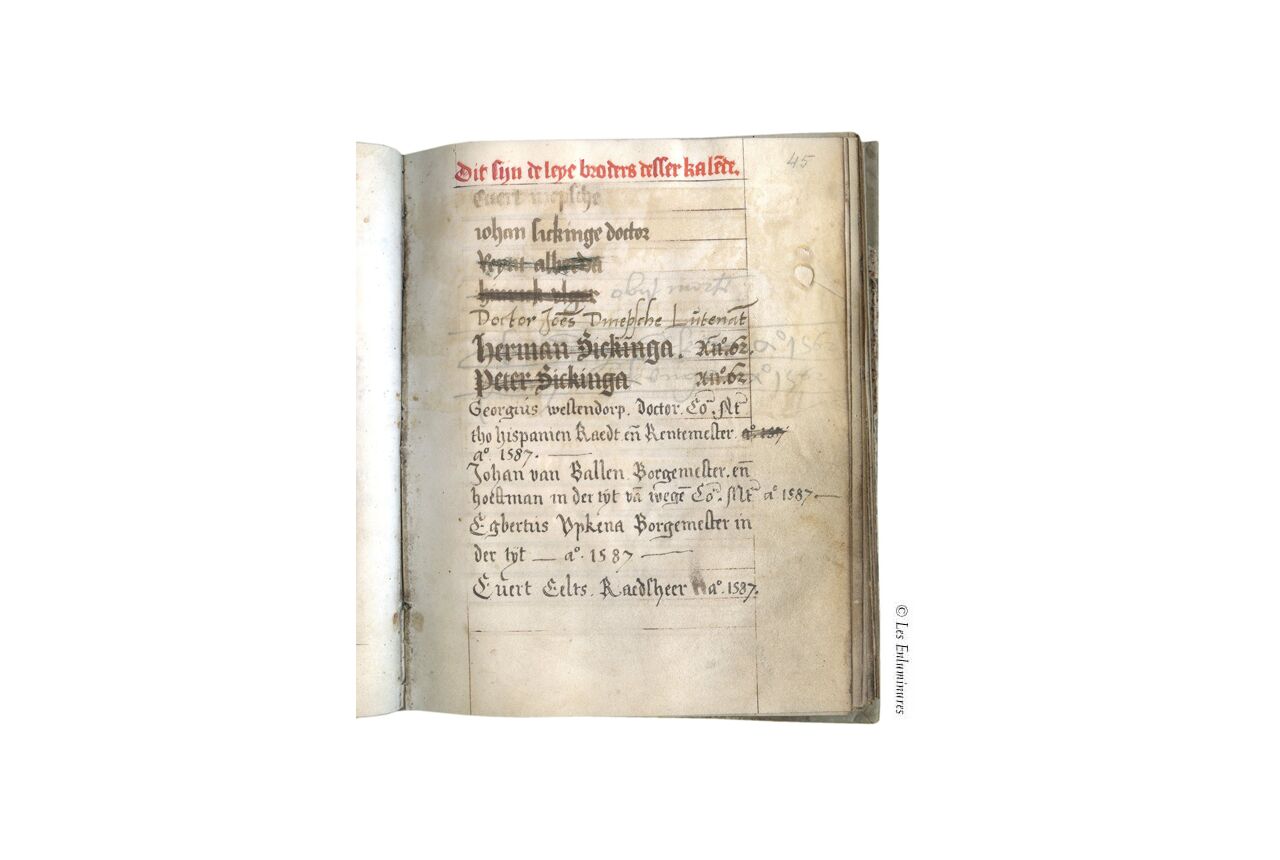 Dit sijn de leye broders desser kalēde.
45
Euert mepsche
iohan sickinge doctor
Reynt alberda
hinrick
obijt mortē
Doctor Joēs Dmepsche Lutenāt
Herman Sickinga. An̄o. 62.
Peter Sickinga An̄o. 62
Georgius westendorp. doctor. Co. Mt
tho hispanien Raedt. en̄ Rentemester aº. 1587
aº. 1587.
Johan van Ballen Borgemester. en̄
hoeftman in der tijt vā wegē Co. Mt aº 1587
Egbertus Upkena Borgemester in
der tijt — aº. 1587 —
Euert Eelts. Raedsheer aº. 1587.
© Les Enluminures